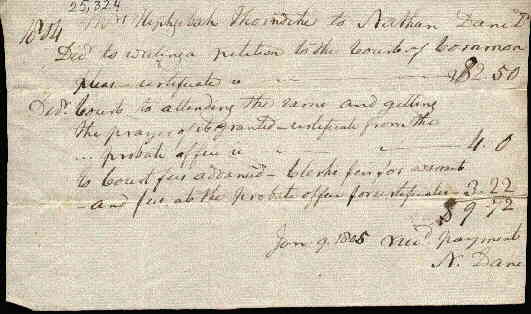 25,324
1804 Mrs Hephzibah Thorndike to Nathan Dane Dr
Dec. to writing a petition to the Court of Common
pleas - certificate &c " " — $2.50
Dec. Court to attending the same and getting
the prayer of it granted - certificate from the
... probate office &c " — 4.0
to Court fees advanced - Clerks fees for
- and fees at the probate office for certificates - 3.22
$9.72
Jan. 9. 1805 recd. payment
N. Dane